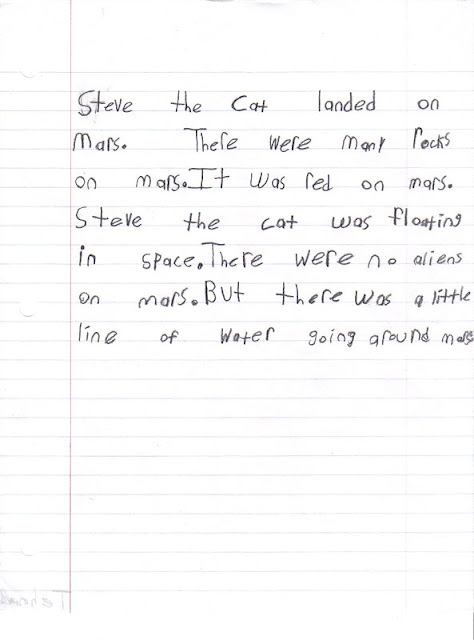 Steve the Cat landed on
Mars. There were many rocks
on mars.It was red on mars.
Steve the cat was floating
in space.There were no aliens
on mars.But there was a little
line of water going around mars